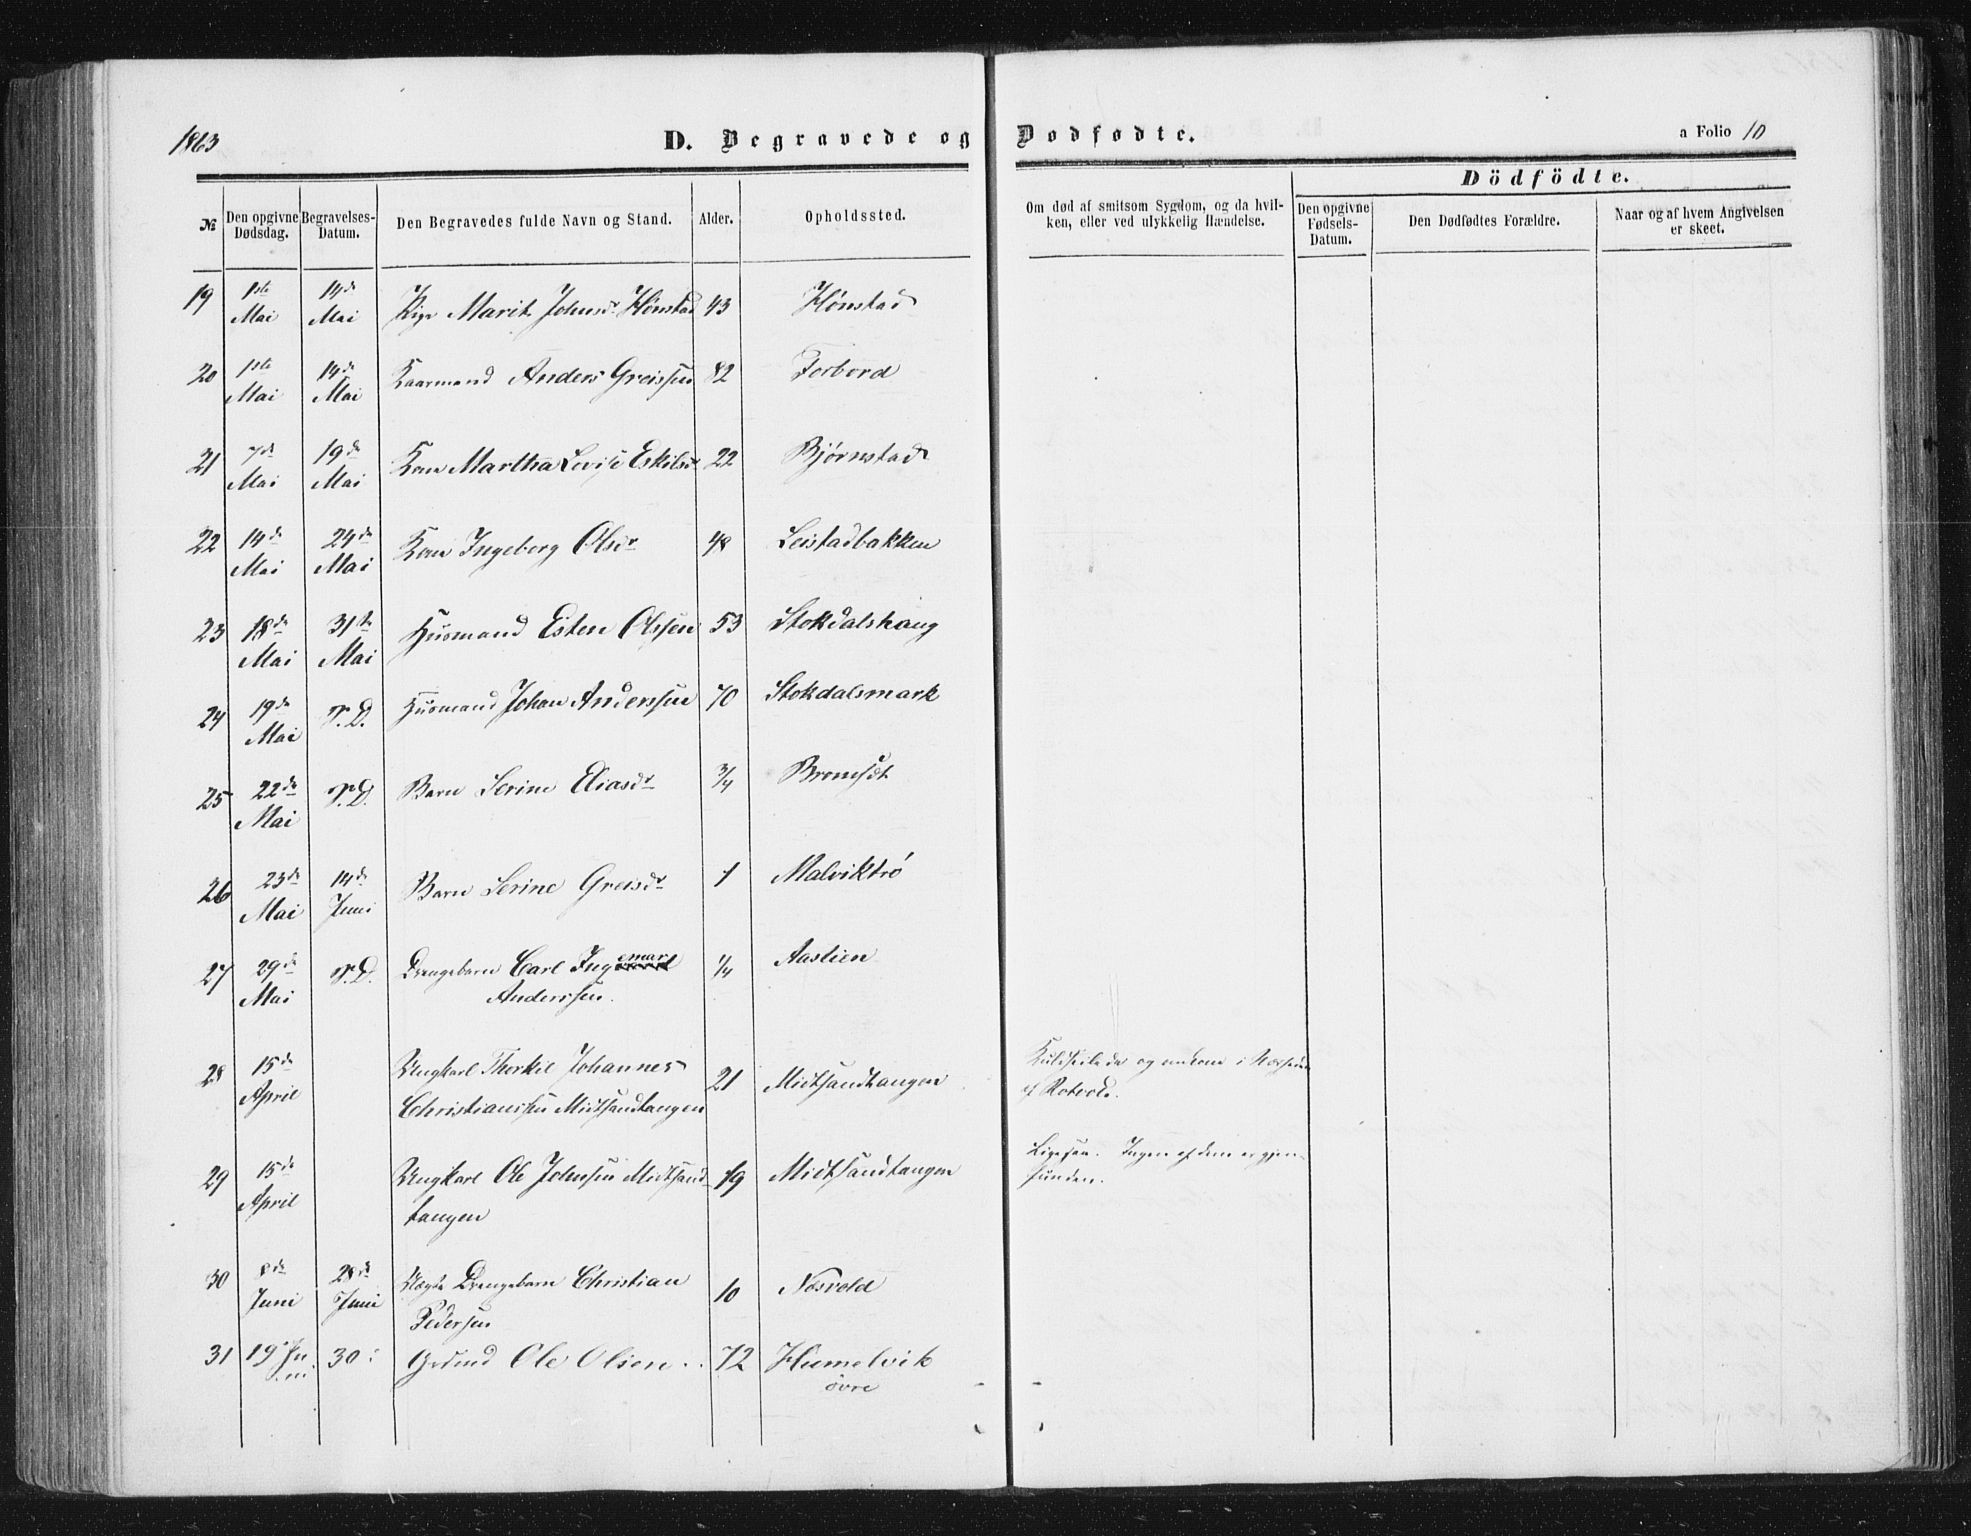 1863
D. Begravede og Dødfødte.
a Folio 10
Dödfödte.
№
Den opgivne Dødsdag.
Begravelses-Datum.
Den Begravedes fulde Navn og Stand.
Alder.
Opholdssted.
Om død af smitsom Sygdom, og da hvil-
ken, eller ved ulykkelig Hændelse.
Den opgivne Fødsels-Datum.
Den Dødfødtes Forældre.
Naar og af hvem Angivelsen er skeet.
19 1ste Mai 14de Mai Pige Marit Johnsdr Hønstad 43 Hønstad
20 1ste Mai 14de Mai Kaarmand Anders Greissen 82 Forbord
21 7de Mai 19de Mai Kone Martha Lovise Eskilsdr 22 Bjørnstad
22 14de Mai 24de Mai Kone Ingeborg Olsdr 48 Leistadbakken
23 18de Mai 31te Mai Husmand Esten Olssen 53 Stokdalshaug
24 19de Mai S.D. Husmand Johan Anderssen 70 Stokdalsmark
25 22de Mai S.D. Barn Serine Eliasdr 3/4
26 23de Mai 14de Juni Barn Serine Greisdr 1 Malviktrø
27 29de Mai S.D. Drengebarn Carl Ingemar 1/4 Aaslien
Anderssen.
28 15de April Ungkarl Thorkil Johannes 21 Midtsandtangen og omkom i
Christianssen Midtsandtangen af Rotvold.
29 15de April Ungkarl Ole Johnsen Midtsand- 19 Midtsandtangen Ligesaa. Ingen af dem er gjen-
tangen funden.
30 8de Juni 28de Juni Lægds Drengebarn Christian 10 Næsvold
Pedersen
31 19 Juni 30: Grdmd Ole Olsen.. 72 Humelvik
øvre